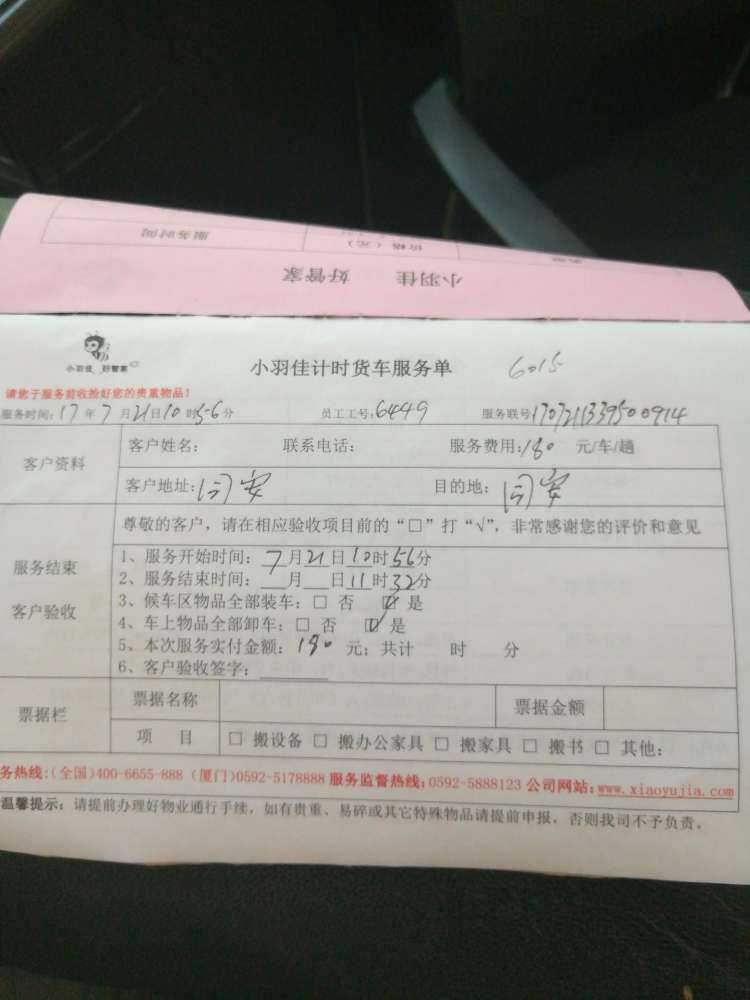 服务时间
价格（元）
小羽佳 好管家
小羽佳 好管家
小羽佳计时货车服务单 6015
请您于服务前收捡好您的贵重物品！
服务时间：17年7月21日10时56分 员工工号：6449 服务联号1707211339500914
客户资料
客户姓名： 联系电话： 服务费用：180 元/车/趟
客户地址：同安 目的地：同安
服务结束
客户验收
尊敬的客户，请在相应验收项目前的“□”打“√”，非常感谢您的评价和意见
1、服务开始时间：7月21日10时56分
2、服务结束时间：__月__日11时32分
3、候车区物品全部装车：□ 否 ☑ 是
4、车上物品全部卸车：□ 否 ☑ 是
5、本次服务实付金额：180 元；共计 时 分
6、客户验收签字：
票据栏
票据名称 票据金额
项 目 □ 搬设备 □ 搬办公家具 □ 搬家具 □ 搬书 □ 其他：
务热线：(全国)400-6655-888 (厦门)0592-5178888 服务监督热线：0592-5888123 公司网站：www.xiaoyujia.com
温馨提示：请提前办理好物业通行手续，如有贵重、易碎或其它特殊物品请提前申报，否则我司不予负责。